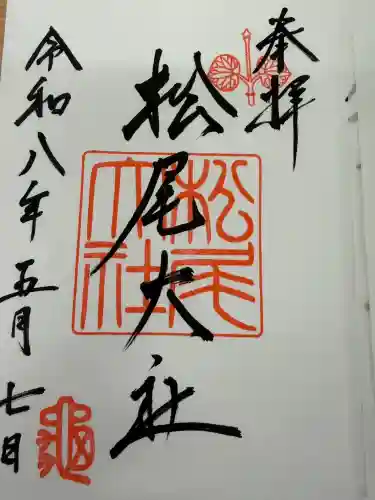 奉拝
松尾大社
松尾大社
令和八年五月七日
亀